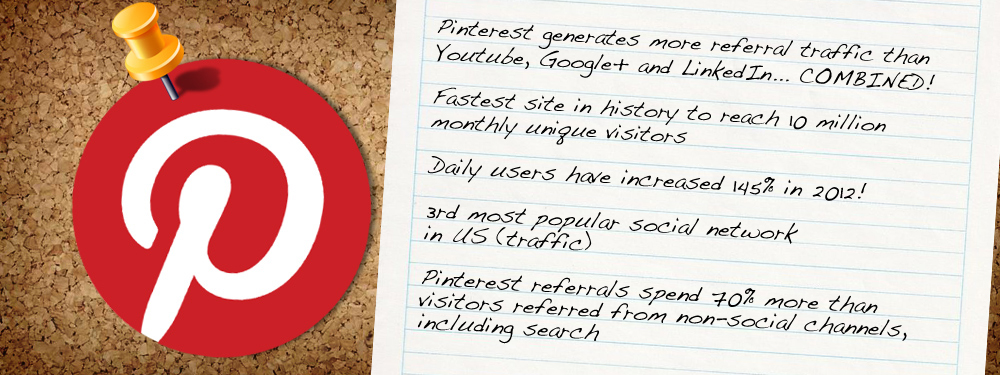 Pinterest generates more referral traffic than
Youtube, Google+ and LinkedIn... COMBINED!
Fastest site in history to reach 10 million
monthly unique visitors
Daily users have increased 145% in 2012!
3rd most popular social network
in US (traffic)
Pinterest referrals spend 70% more than
visitors referred from non-social channels,
including search